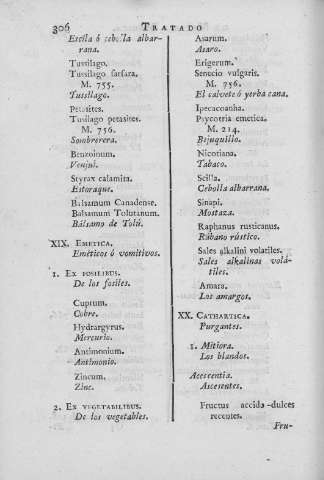 306 TRATADO
Escila ó cebolla albar-
rana.
Tussilago.
Tussilago farfara.
M. 755.
Tussilago.
Petasites.
Tusilago petasites.
M. 756.
Sombrerera.
Benzoinum.
Venjui.
Styrax calamita.
Estoraque.
Balsamum Canadense.
Balsamum Tolutanum.
Bálsamo de Tolú.
XIX. EMETICA.
Eméticos ó vomitivos.
1. EX FOSILIBUS.
De los fosiles.
Cuprum.
Cobre.
Hydrargyrus.
Mercurio.
Antimonium.
Antimonio.
Zincum.
Zinc.
2. EX VEGETABILIBUS.
De los vegetables.
Asarum.
Asaro.
Erigerum.
Senecio vulgaris.
M. 756.
El calvete ó yerba cana.
Ipecacoanha.
Psycotria emetica.
M. 214.
Bejuquillo.
Nicotiana.
Tabaco.
Scilla.
Cebolla albarrana.
Sinapi.
Mostaza.
Raphanus rusticanus.
Rábano rústico.
Sales alkalini volatiles.
Sales alkalinas volá-
tiles.
Amara.
Los amargos.
XX. CATHARTICA.
Purgantes.
1. Mitiora.
Los blandos.
Acescentia.
Ascesentes.
Fructus accida-dulces
recentes.
Fru-